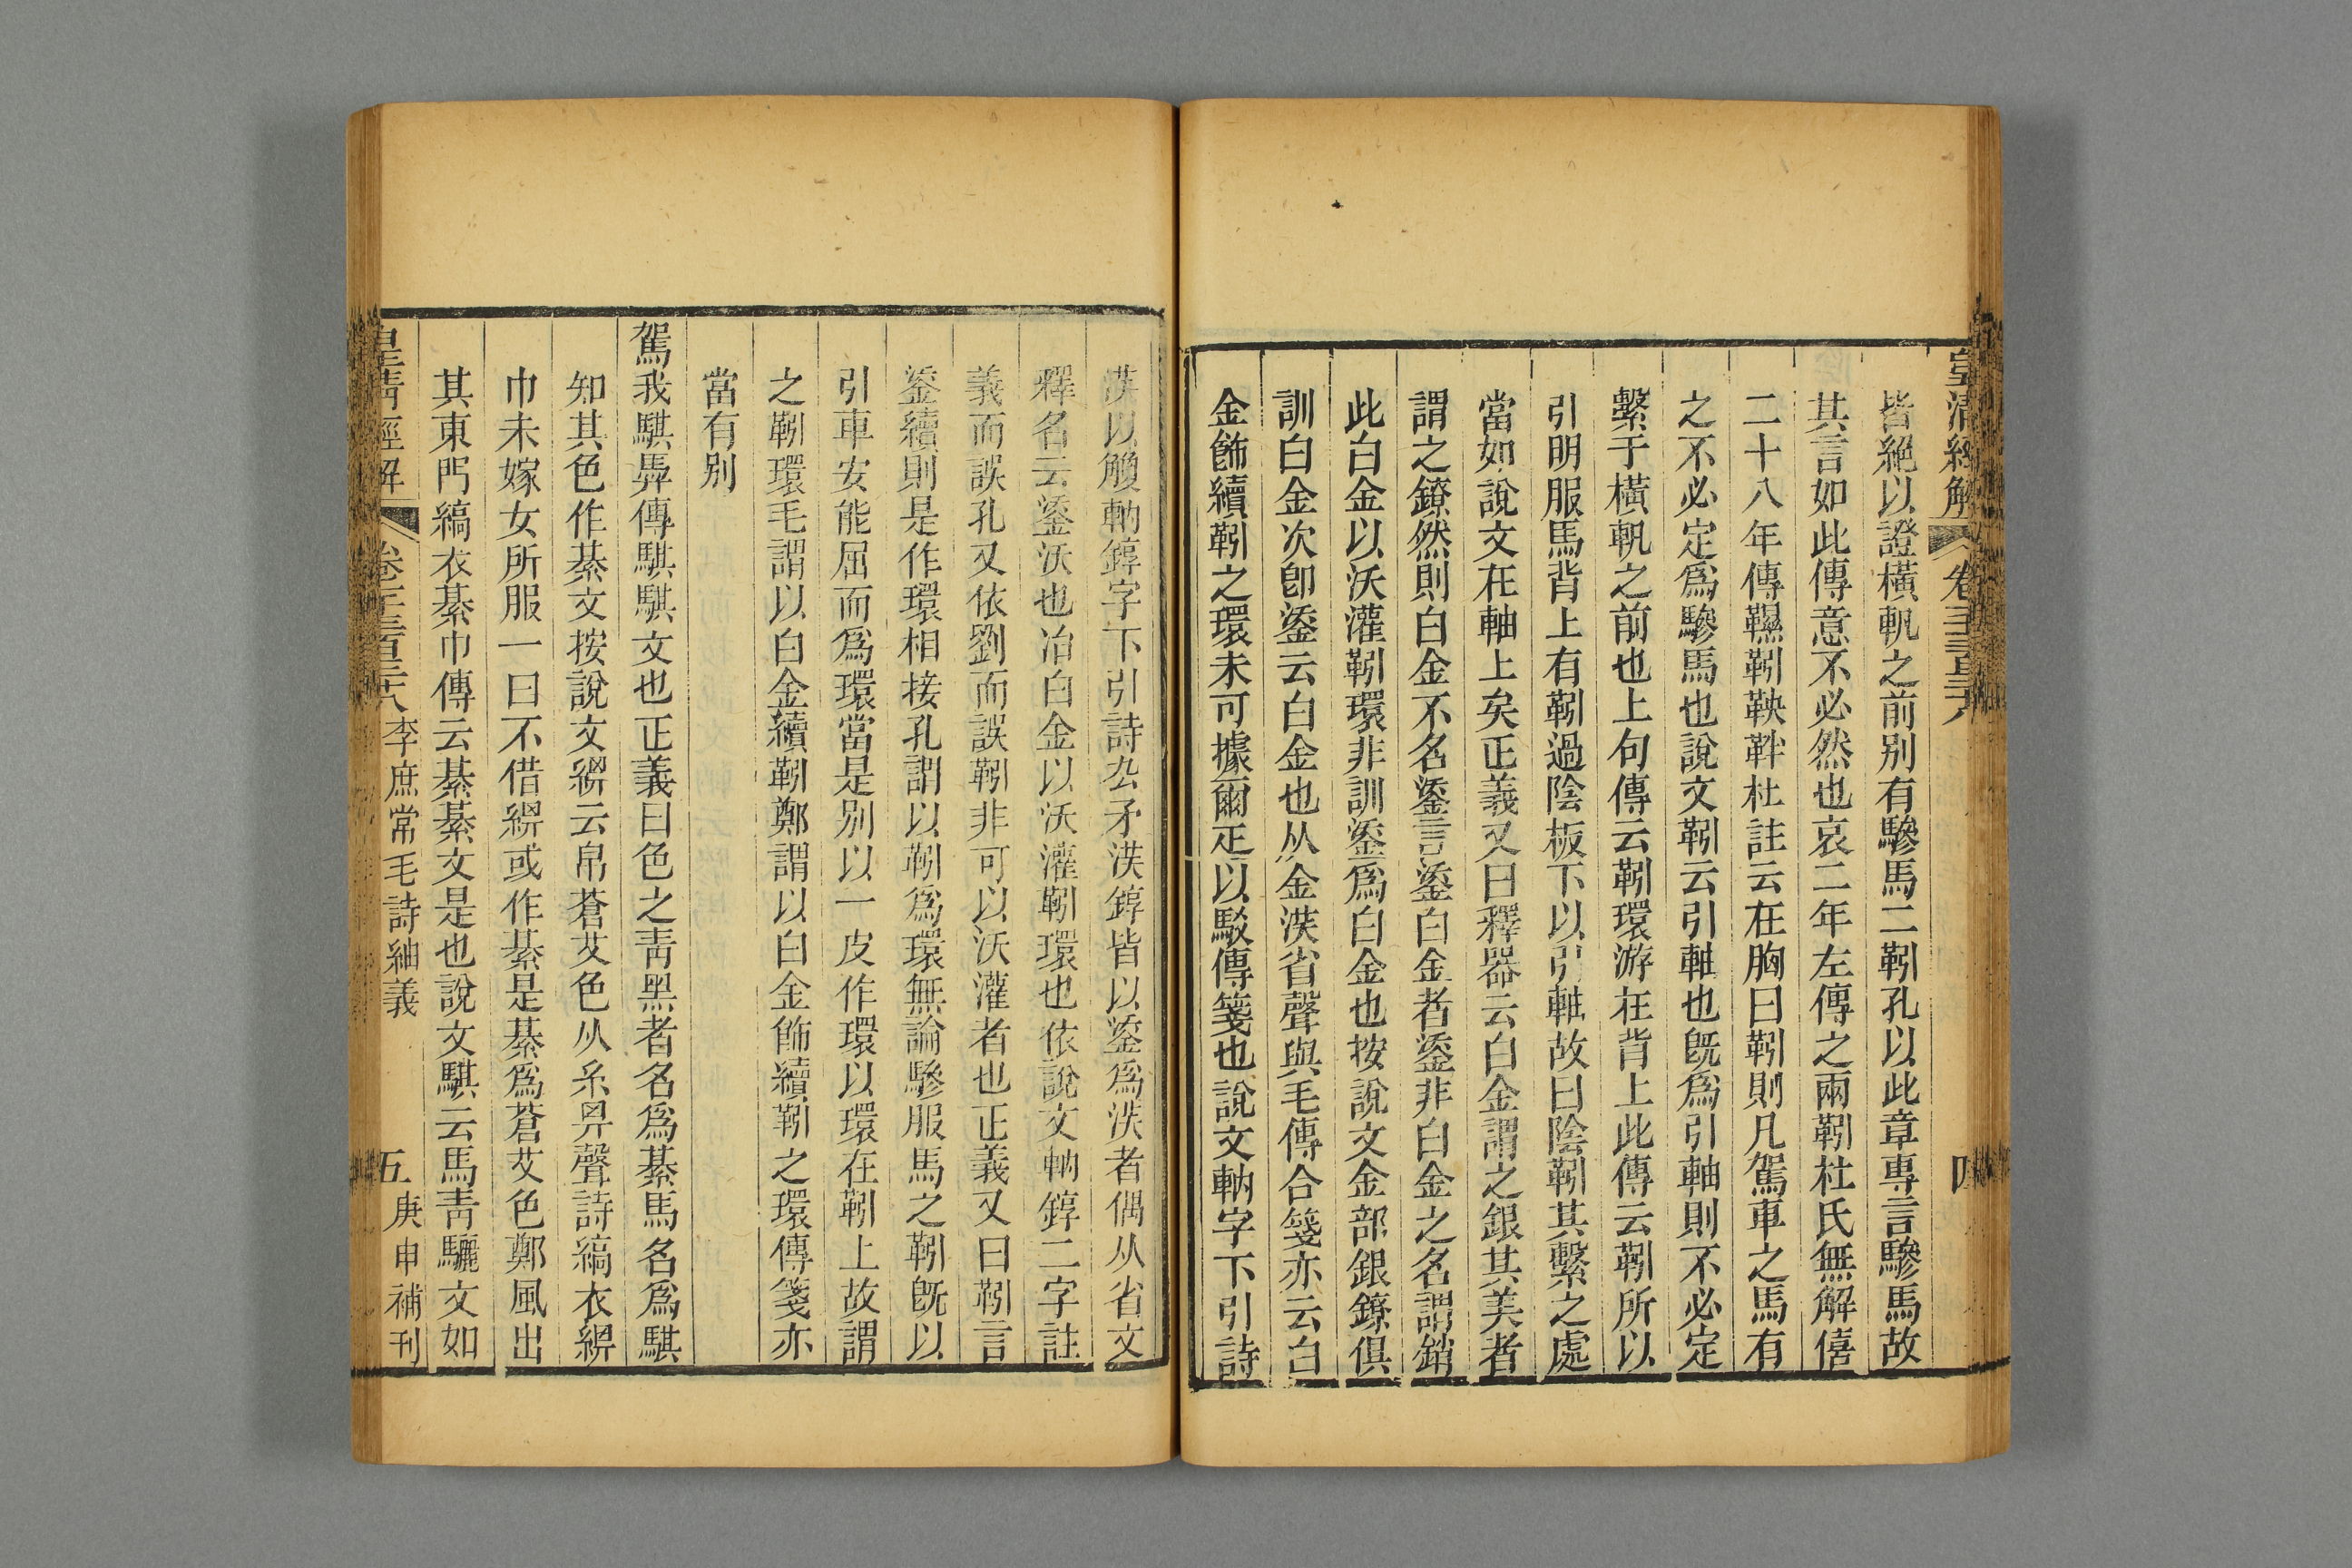 皇清經解 卷一千三百三十八 四
皆絕以證橫軓之前別有驂馬二靷孔以此章專言驂馬故
其言如此傳意不必然也哀二年左傳之兩靷杜氏無解僖
二十八年傳韅靷鞅靽杜註云在胸曰靷則凡駕車之馬有
之不必定爲驂馬也說文靷云引軸也旣爲引軸則不必定
繫于橫軓之前也上句傳云靷環游在背上此傳云靷所以
引明服馬背上有靷過陰板下以引軸故曰陰靷其繫之處
當如說文在軸上矣正義又曰釋器云白金謂之銀其美者
謂之鐐然則白金不名鋈言鋈白金者鋈非白金之名謂銷
此白金以沃灌靷環非訓鋈爲白金也按說文金部銀鐐俱
訓白金次卽鋈云白金也从金渶省聲與毛傳合箋亦云白
金飾續靷之環未可據爾疋以駁傳箋也說文軜字下引詩
渶以觼軜錞字下引詩厹矛渶錞皆以鋈爲渶者偶从省文
釋名云鋈沃也冶白金以沃灌靷環也依說文軜錞二字註
義而誤孔又依劉而誤靷非可以沃灌者也正義又曰靷言
鋈續則是作環相接孔謂以靷爲環無論驂服馬之靷旣以
引車安能屈而爲環當是別以一皮作環以環在靷上故謂
之靷環毛謂以白金續靷鄭謂以白金飾續靷之環傳箋亦
當有別
駕我騏馵傳騏騏文也正義曰色之靑黑者名爲綦馬名爲騏
知其色作綦文按說文綥云帛蒼艾色从糸畀聲詩縞衣綥
巾未嫁女所服一曰不借綥或作綦是綦爲蒼艾色鄭風出
其東門縞衣綦巾傳云綦綦文是也說文騏云馬靑驪文如
皇清經解 卷一千三百三十八 李庶常毛詩紬義 五 庚申補刊